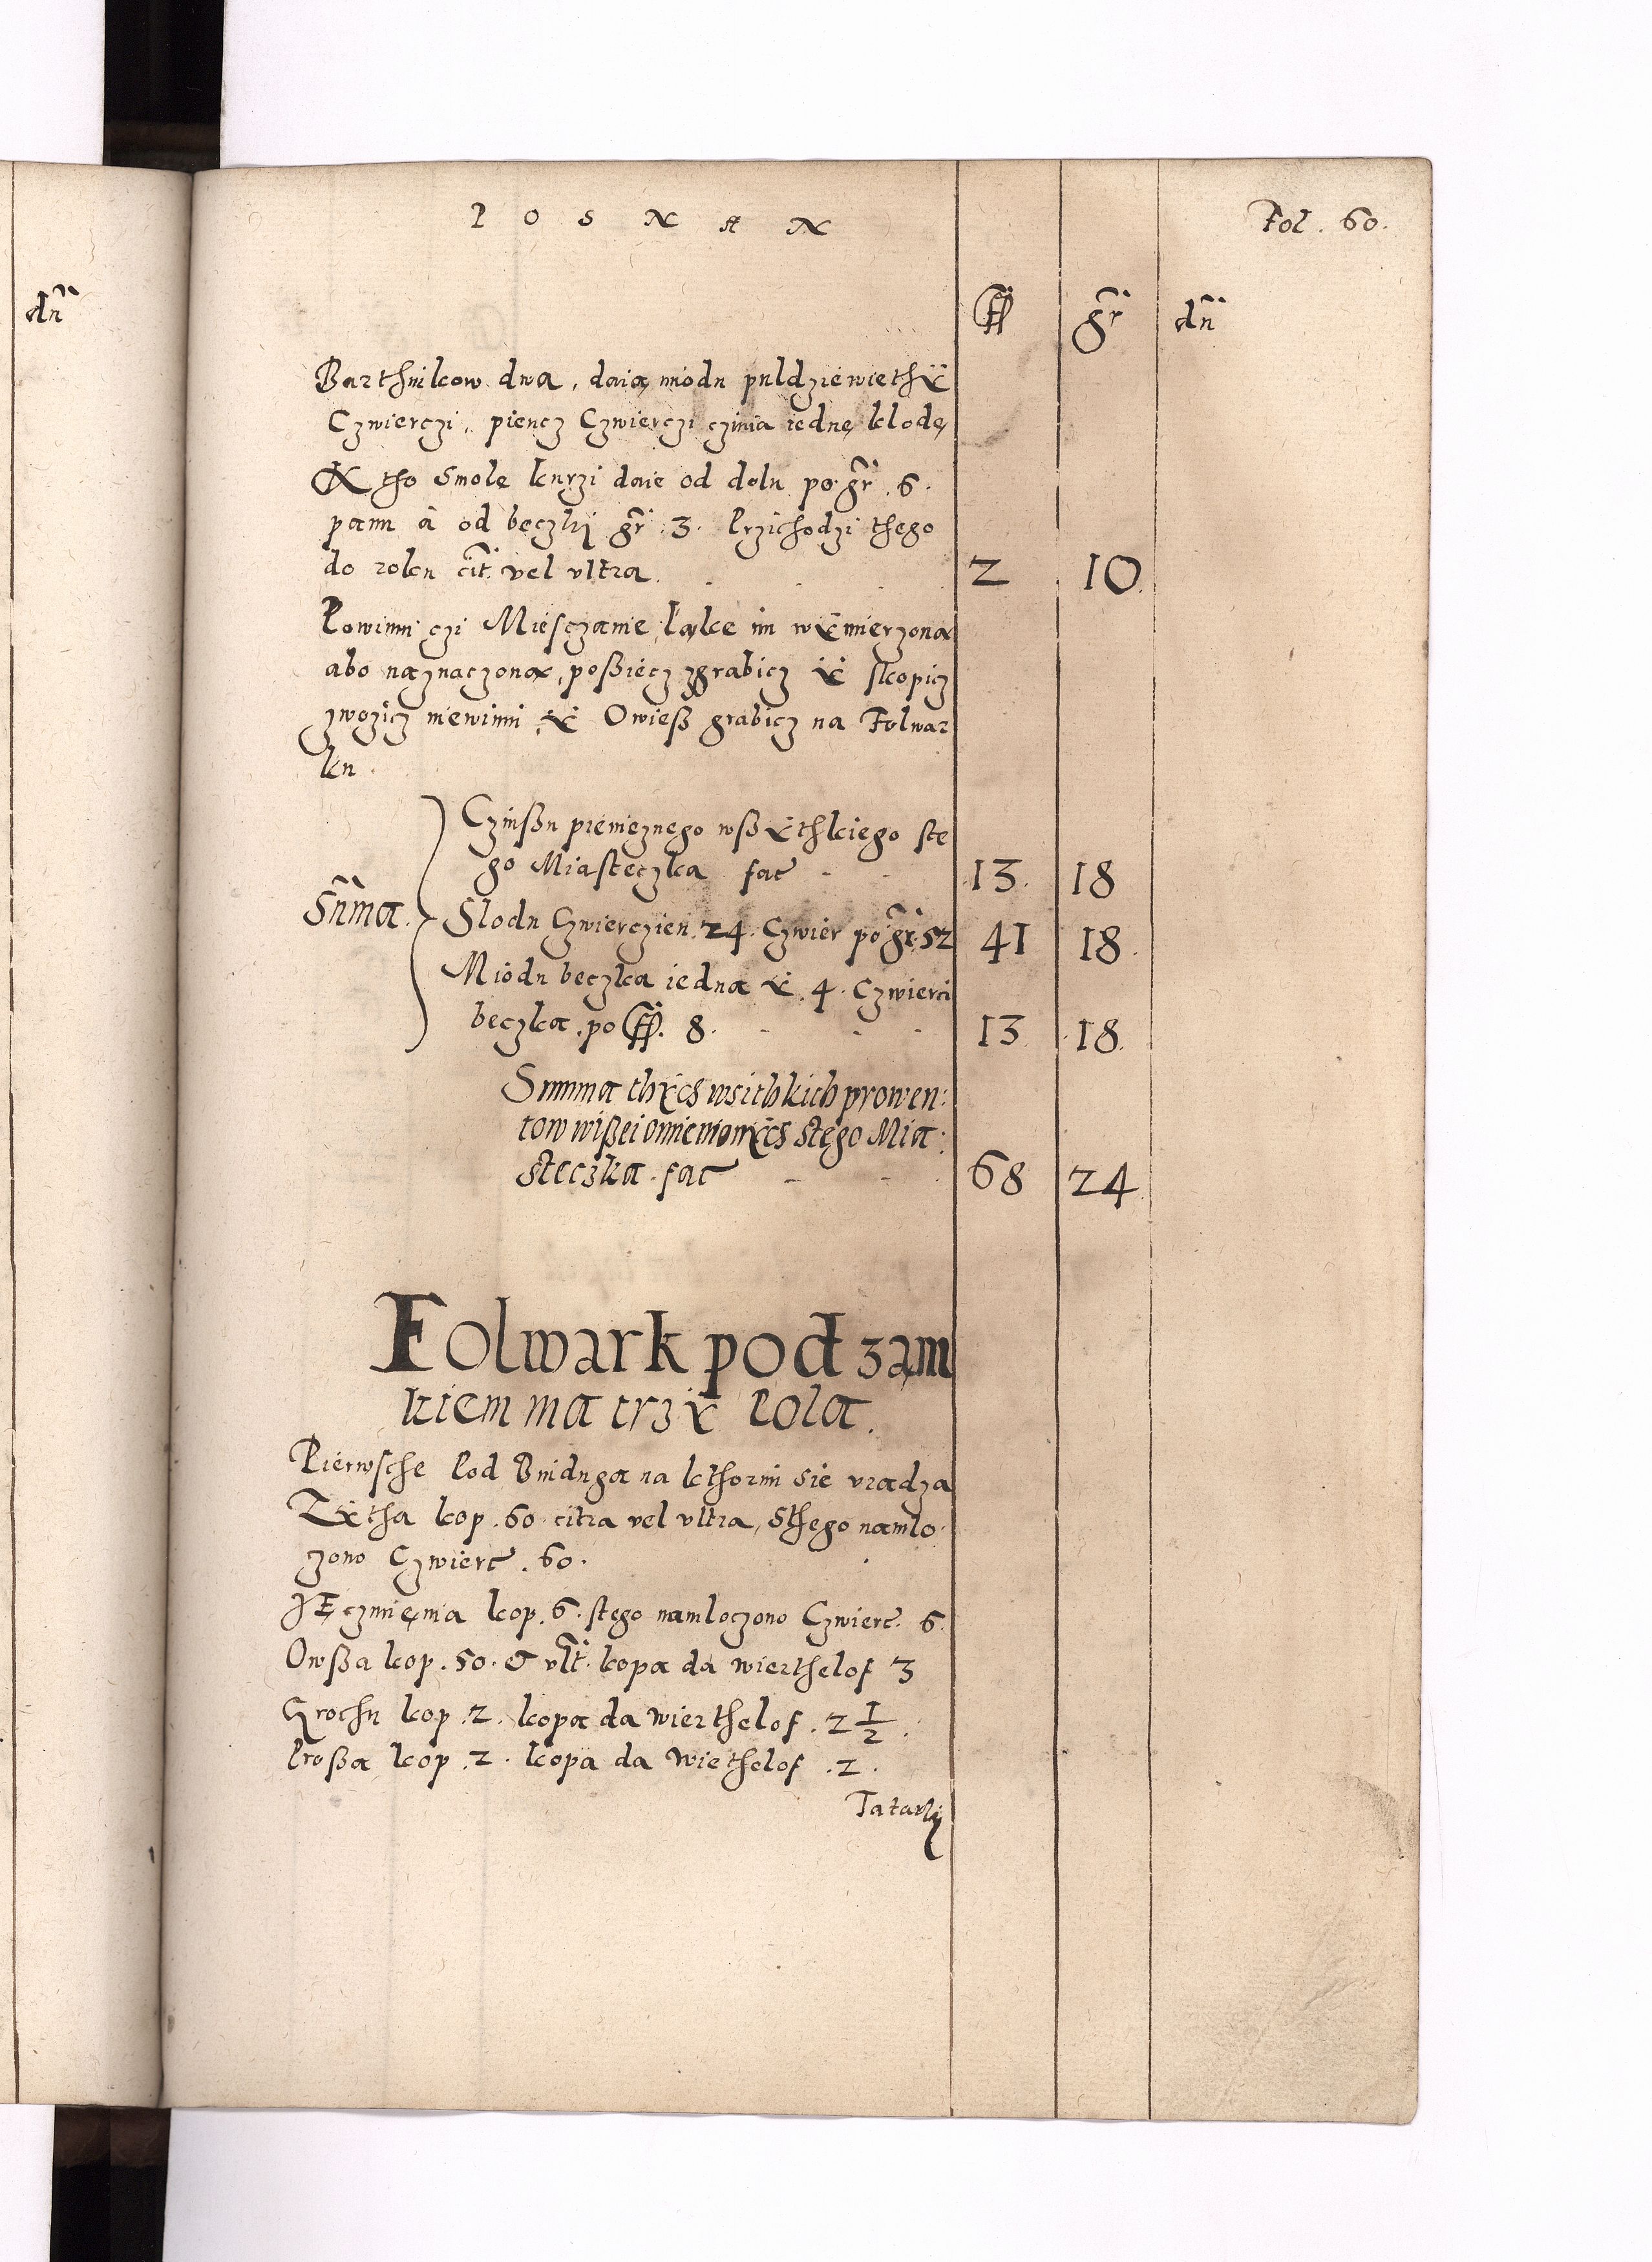 POSNAN
Fol. 60.
fl gr dn
dn
Barthnikow dwa, daią miodu puldziewiethÿ
Czwierczi, piencz Czwierczi czinia iednę klodę
Ktho Smolę kurzi daie od dolu po gr. 6.
panu à od beczki gr. 3. Przichodzi thego
do roku cit. vel vltra. 2 10.
Powinni czi Miesczanie, łąkę im wÿmierzoną
abo naznaczoną, poßiecz zgrabicz ÿ skopicz
zwozicz niewinni, ÿ Owieß grabicz na Folwar
ku.
Czinßu pieniężnego wßÿthkiego ste
go Miasteczka fac 13. 18
Suma. Slodu Czwierczien. 24. Czwier po gr. 52 41 18.
Miodu beczka iedna ÿ. 4. Czwierci
beczka. po fl. 8. 13 18.
Summa thÿch wsithkich prowen:
tow wißei omienionÿch stego Mia:
steczka. fac 68 24
Folwark pod zam
kiem ma trzÿ Pola.
Pierwsche Pod Bnidugą na kthorim się vradza
Zÿtha kop. 60. citra vel vltra, sthego namlo
zono Czwierc. 60.
JĘczmięnia kop. 6. stego namloczono Czwierc. 6.
Owßa kop. 50. et vlt. kopa da wierthelof 3
Grochu kop. 2. kopa da wierthelof. 2 1/2.
Proßa kop. 2. kopa da wiethelof. 2.
Tatarki